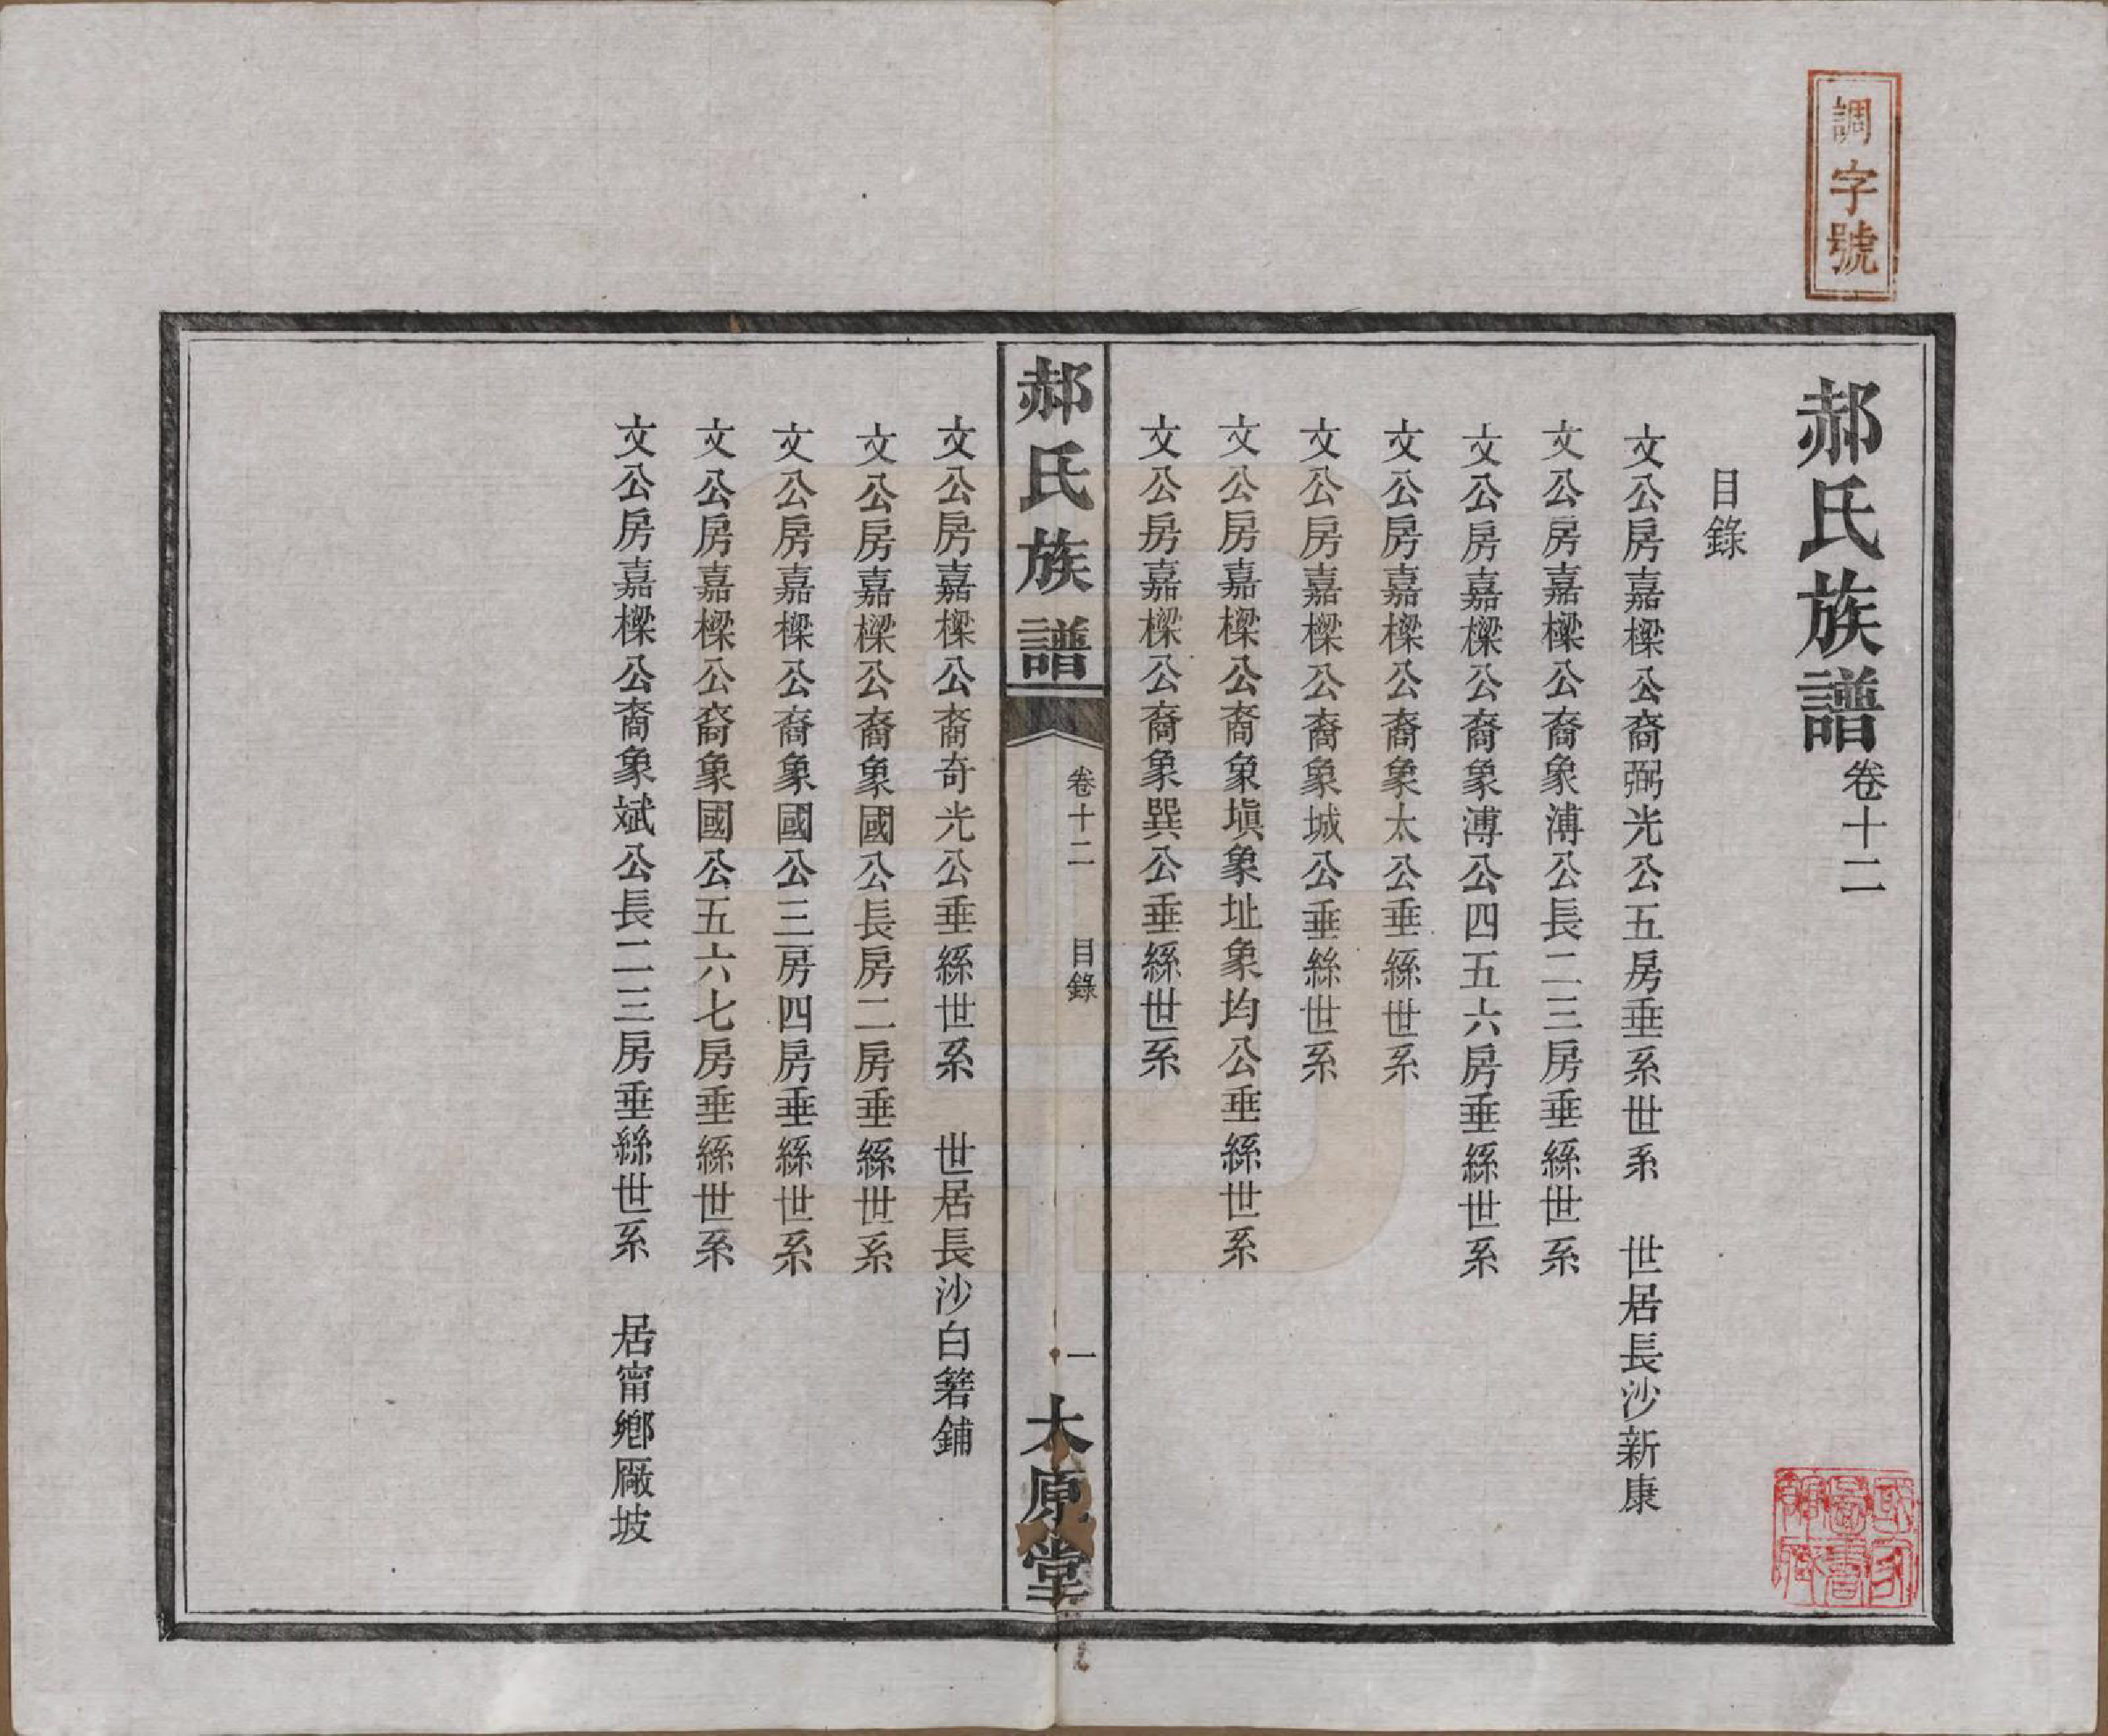 調字號
郝氏族譜卷十二
目錄
文公房嘉樑公裔弼光公五房垂系世系　世居長沙新康
文公房嘉樑公裔象溥公長二三房垂絲世系
文公房嘉樑公裔象溥公四五六房垂絲世系
文公房嘉樑公裔象太公垂絲世系
文公房嘉樑公裔象城公垂絲世系
文公房嘉樑公裔象塡象址象均公垂絲世系
文公房嘉樑公裔象巽公垂絲世系
郝氏族譜　卷十二　目錄　一　太原堂
文公房嘉樑公裔奇光公垂絲世系　世居長沙白箬鋪
文公房嘉樑公裔象國公長房二房垂絲世系
文公房嘉樑公裔象國公三房四房垂絲世系
文公房嘉樑公裔象國公五六七房垂絲世系
文公房嘉樑公裔象斌公長二三房垂絲世系　居甯鄉厰坡
國家圖書館藏